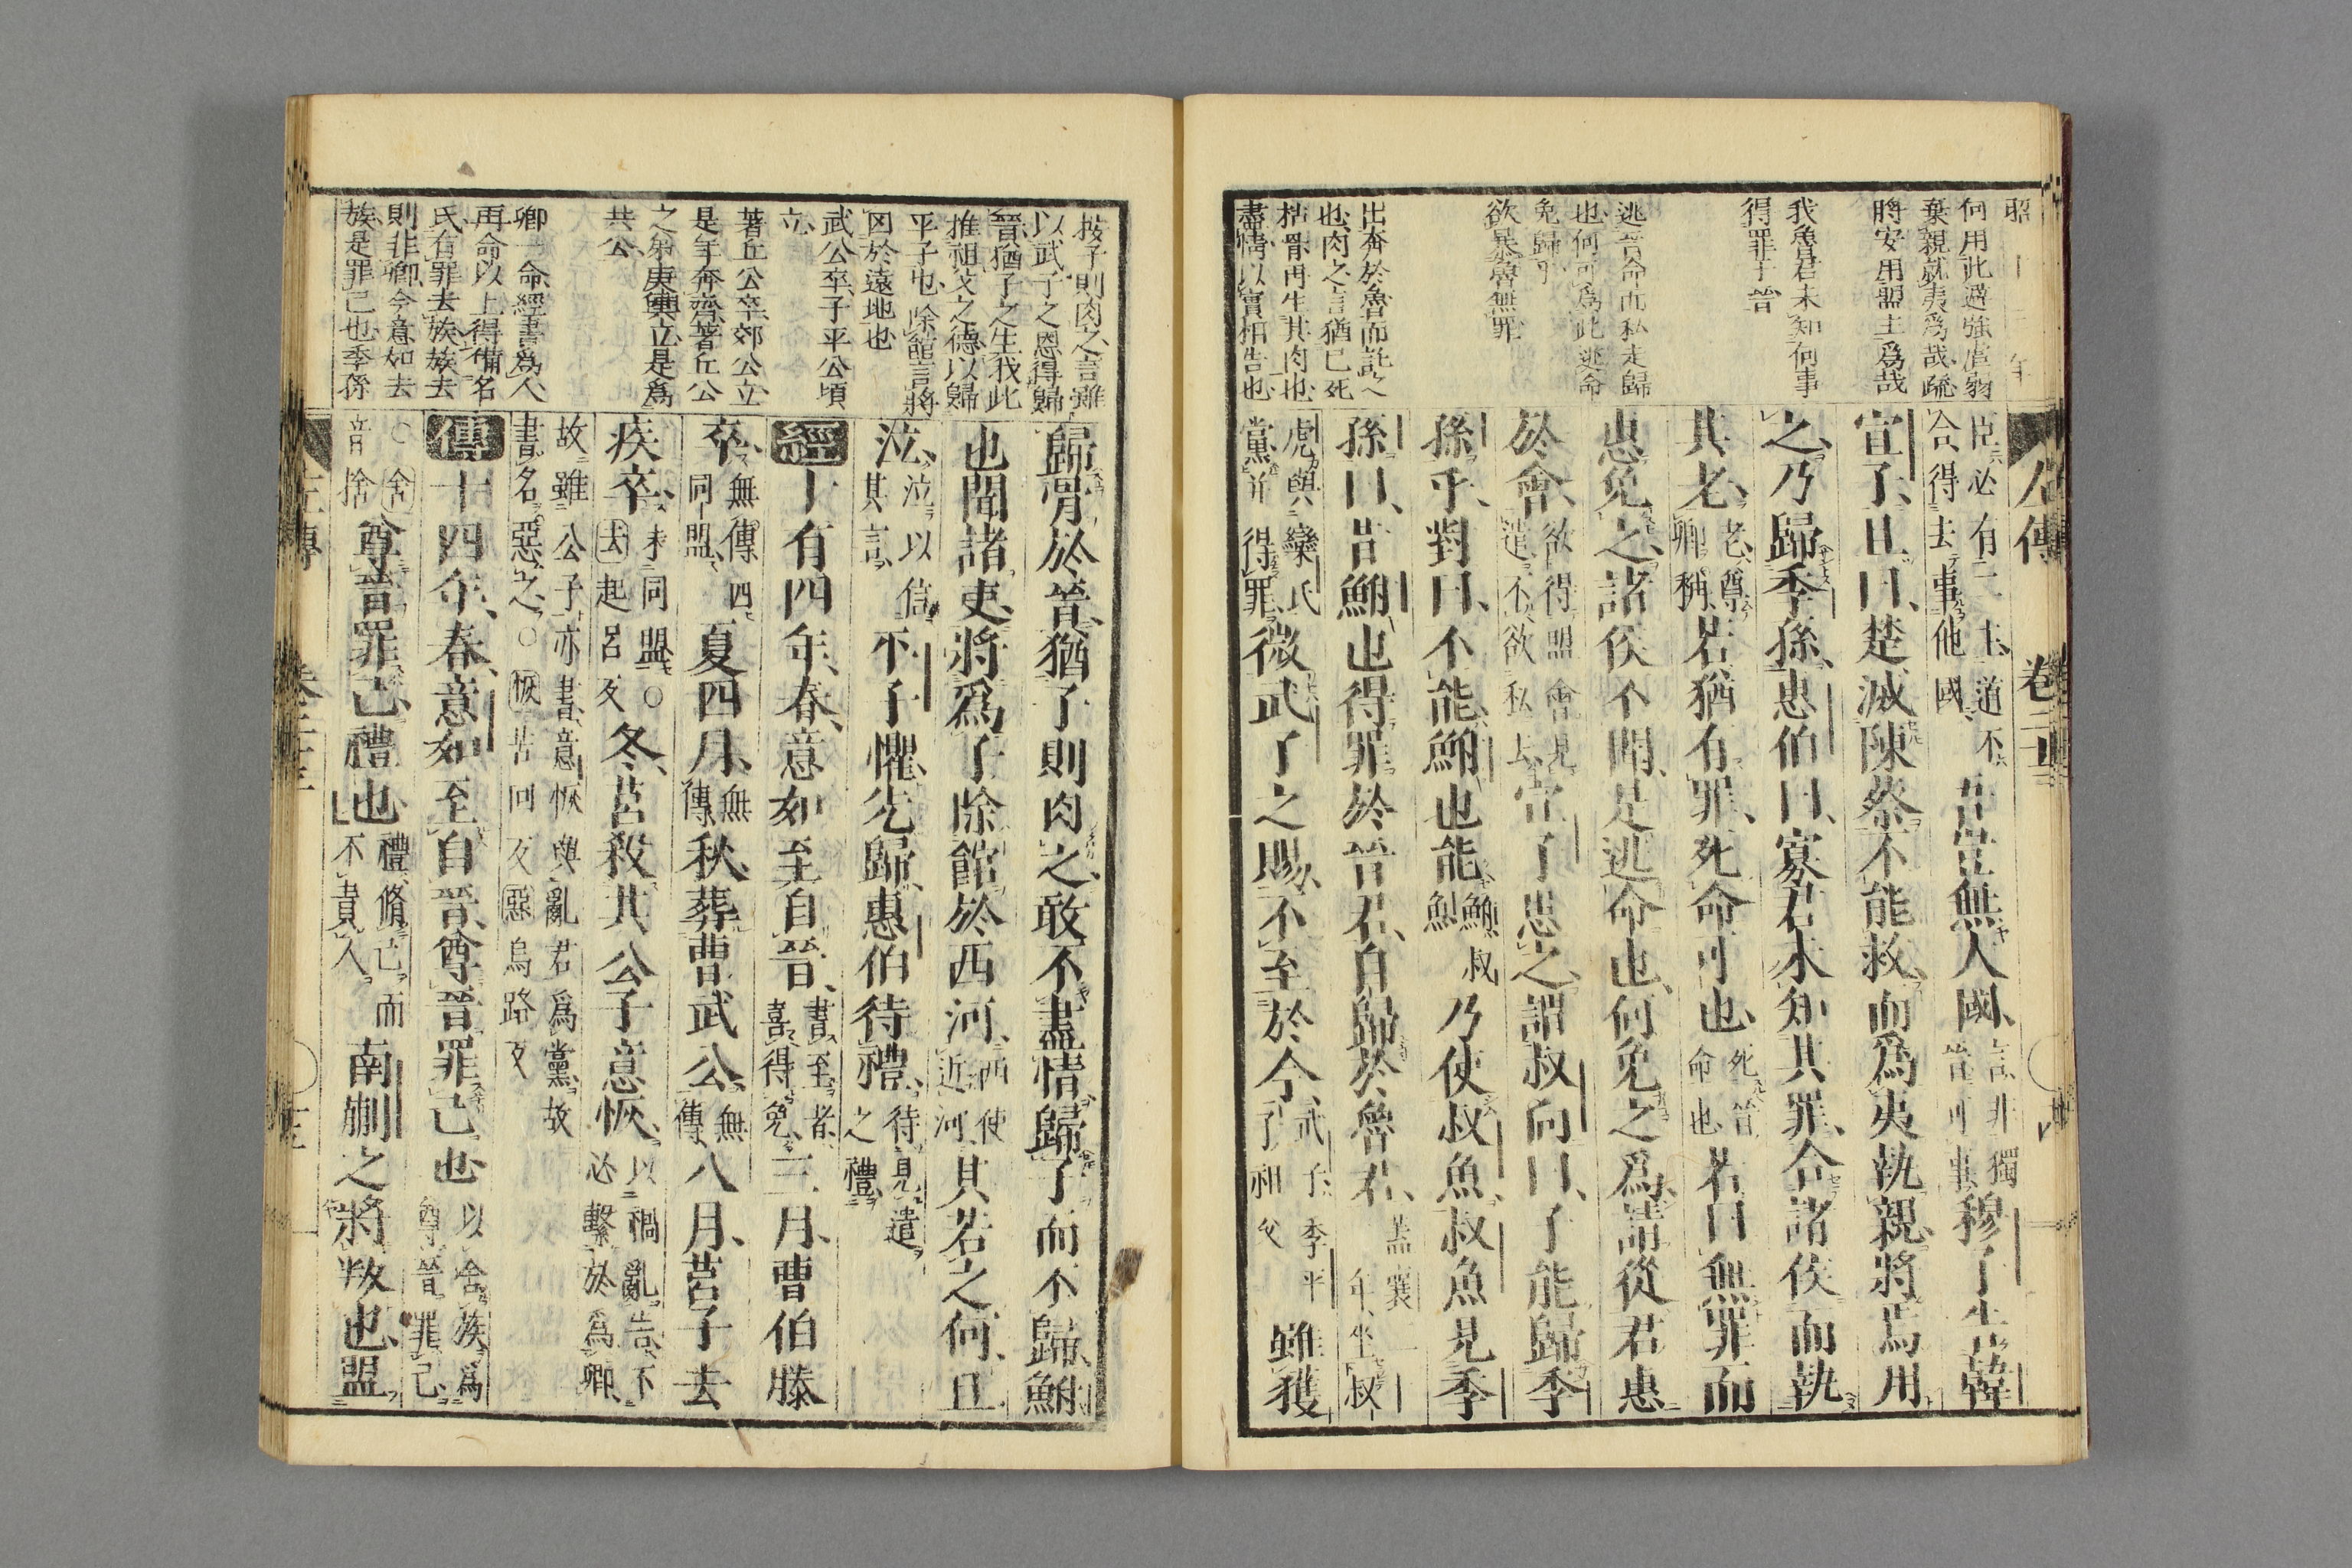 昭
何用此遇強虐弱
棄親就夷爲哉䟽
將安用盟主爲哉
我魯君未知何事
得罪于晉
逃晉命而私走歸
也何可爲此逃命
免歸乎
欲暴魯無罪
出奔於魯而託
也肉之言猶已死
枯骨再生其肉也
盡情以實相告也
左傳 卷二十三
臣必有二主道不
合得去事他國
吾豈無大國言非獨
晉可事穆子告韓
宣子且曰楚滅陳蔡不能救而爲夷執親將焉用
之乃歸季孫惠伯曰寡君未知其罪合諸侯而執
其老老尊
卿稱若猶有罪死命可也死晉
命也若曰無罪而
惠免之諸侯不聞是逃命也何免之爲請從君惠
於會欲得盟會見
遣不欲私去宣子患之謂叔向曰子能歸季
孫乎對曰不能鮒也能鮒叔
魚乃使叔魚叔魚見季
孫曰昔鮒也得罪於晉君自歸於魯君蓋襄二十一
年坐叔
虎與欒氏
黨並得罪微武子之賜不至於今武子季平
子祖父雖獲
按子則肉之言雖
以武子之恩得歸
晉猶子之生我此
推祖父之德以歸
平子也除館言將
囚於遠地也
武公卒子平公頃
立
著丘公卒郊公立
是年奔齊著丘公
之弟庚輿立是爲
共公
卿一命經書爲人
再命以上得備名
氏有罪去族族去
則非卿今意如去
族是罪己也季孫
歸骨於晉猶子則肉之敢不盡情歸子而不歸鮒
也聞諸吏將爲子除館於西河西使
近河其若之何且
泣泣以信
其言平子懼先歸惠伯待禮待見遣
之禮
經十有四年春意如至自晉書至者
喜得免三月曹伯滕
卒無傳四
同盟夏四月無
傳秋葬曹武公無
傳八月莒子去
疾卒未同盟○
去起呂反冬莒殺其公子意恢以禍亂告不
必繫於爲卿
故雖公子亦書意恢與亂君爲黨故
書名惡之○恢苦回反惡烏路反
傳十四年春意如至自晉尊晉罪己也以舍族爲
尊晉罪己
○舍
音捨尊晉罪己禮也禮脩己而
不責人南蒯之將叛也盟
左傳 卷二十三